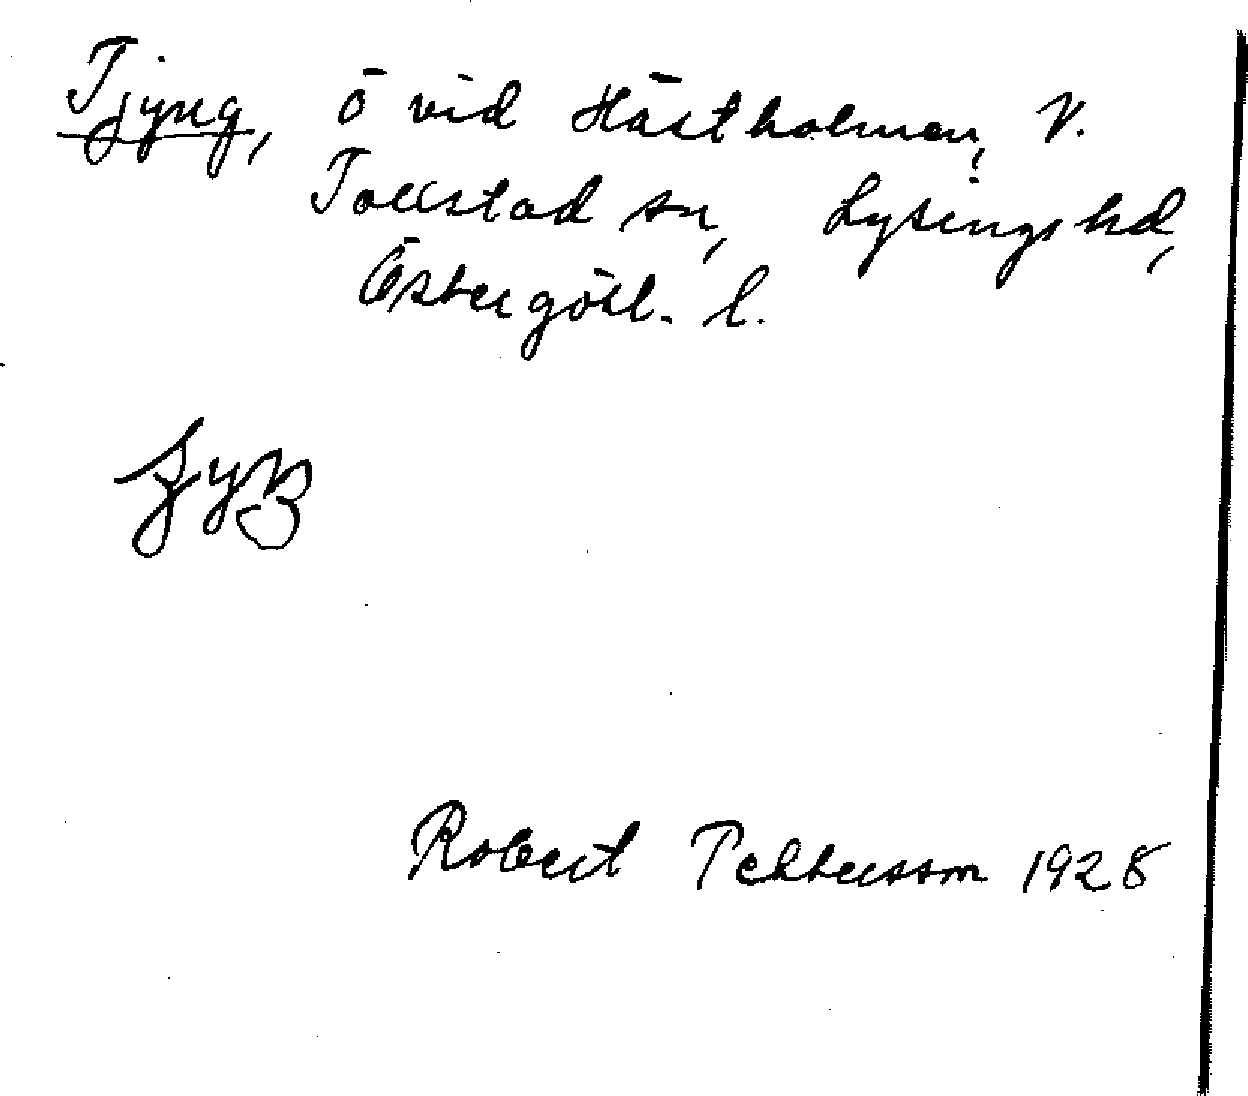 Tjyng, ö vid Hästholmen, V.
Tollstad sn, Lysings hd,
Östergötl. l.
Robert Pettersson 1928